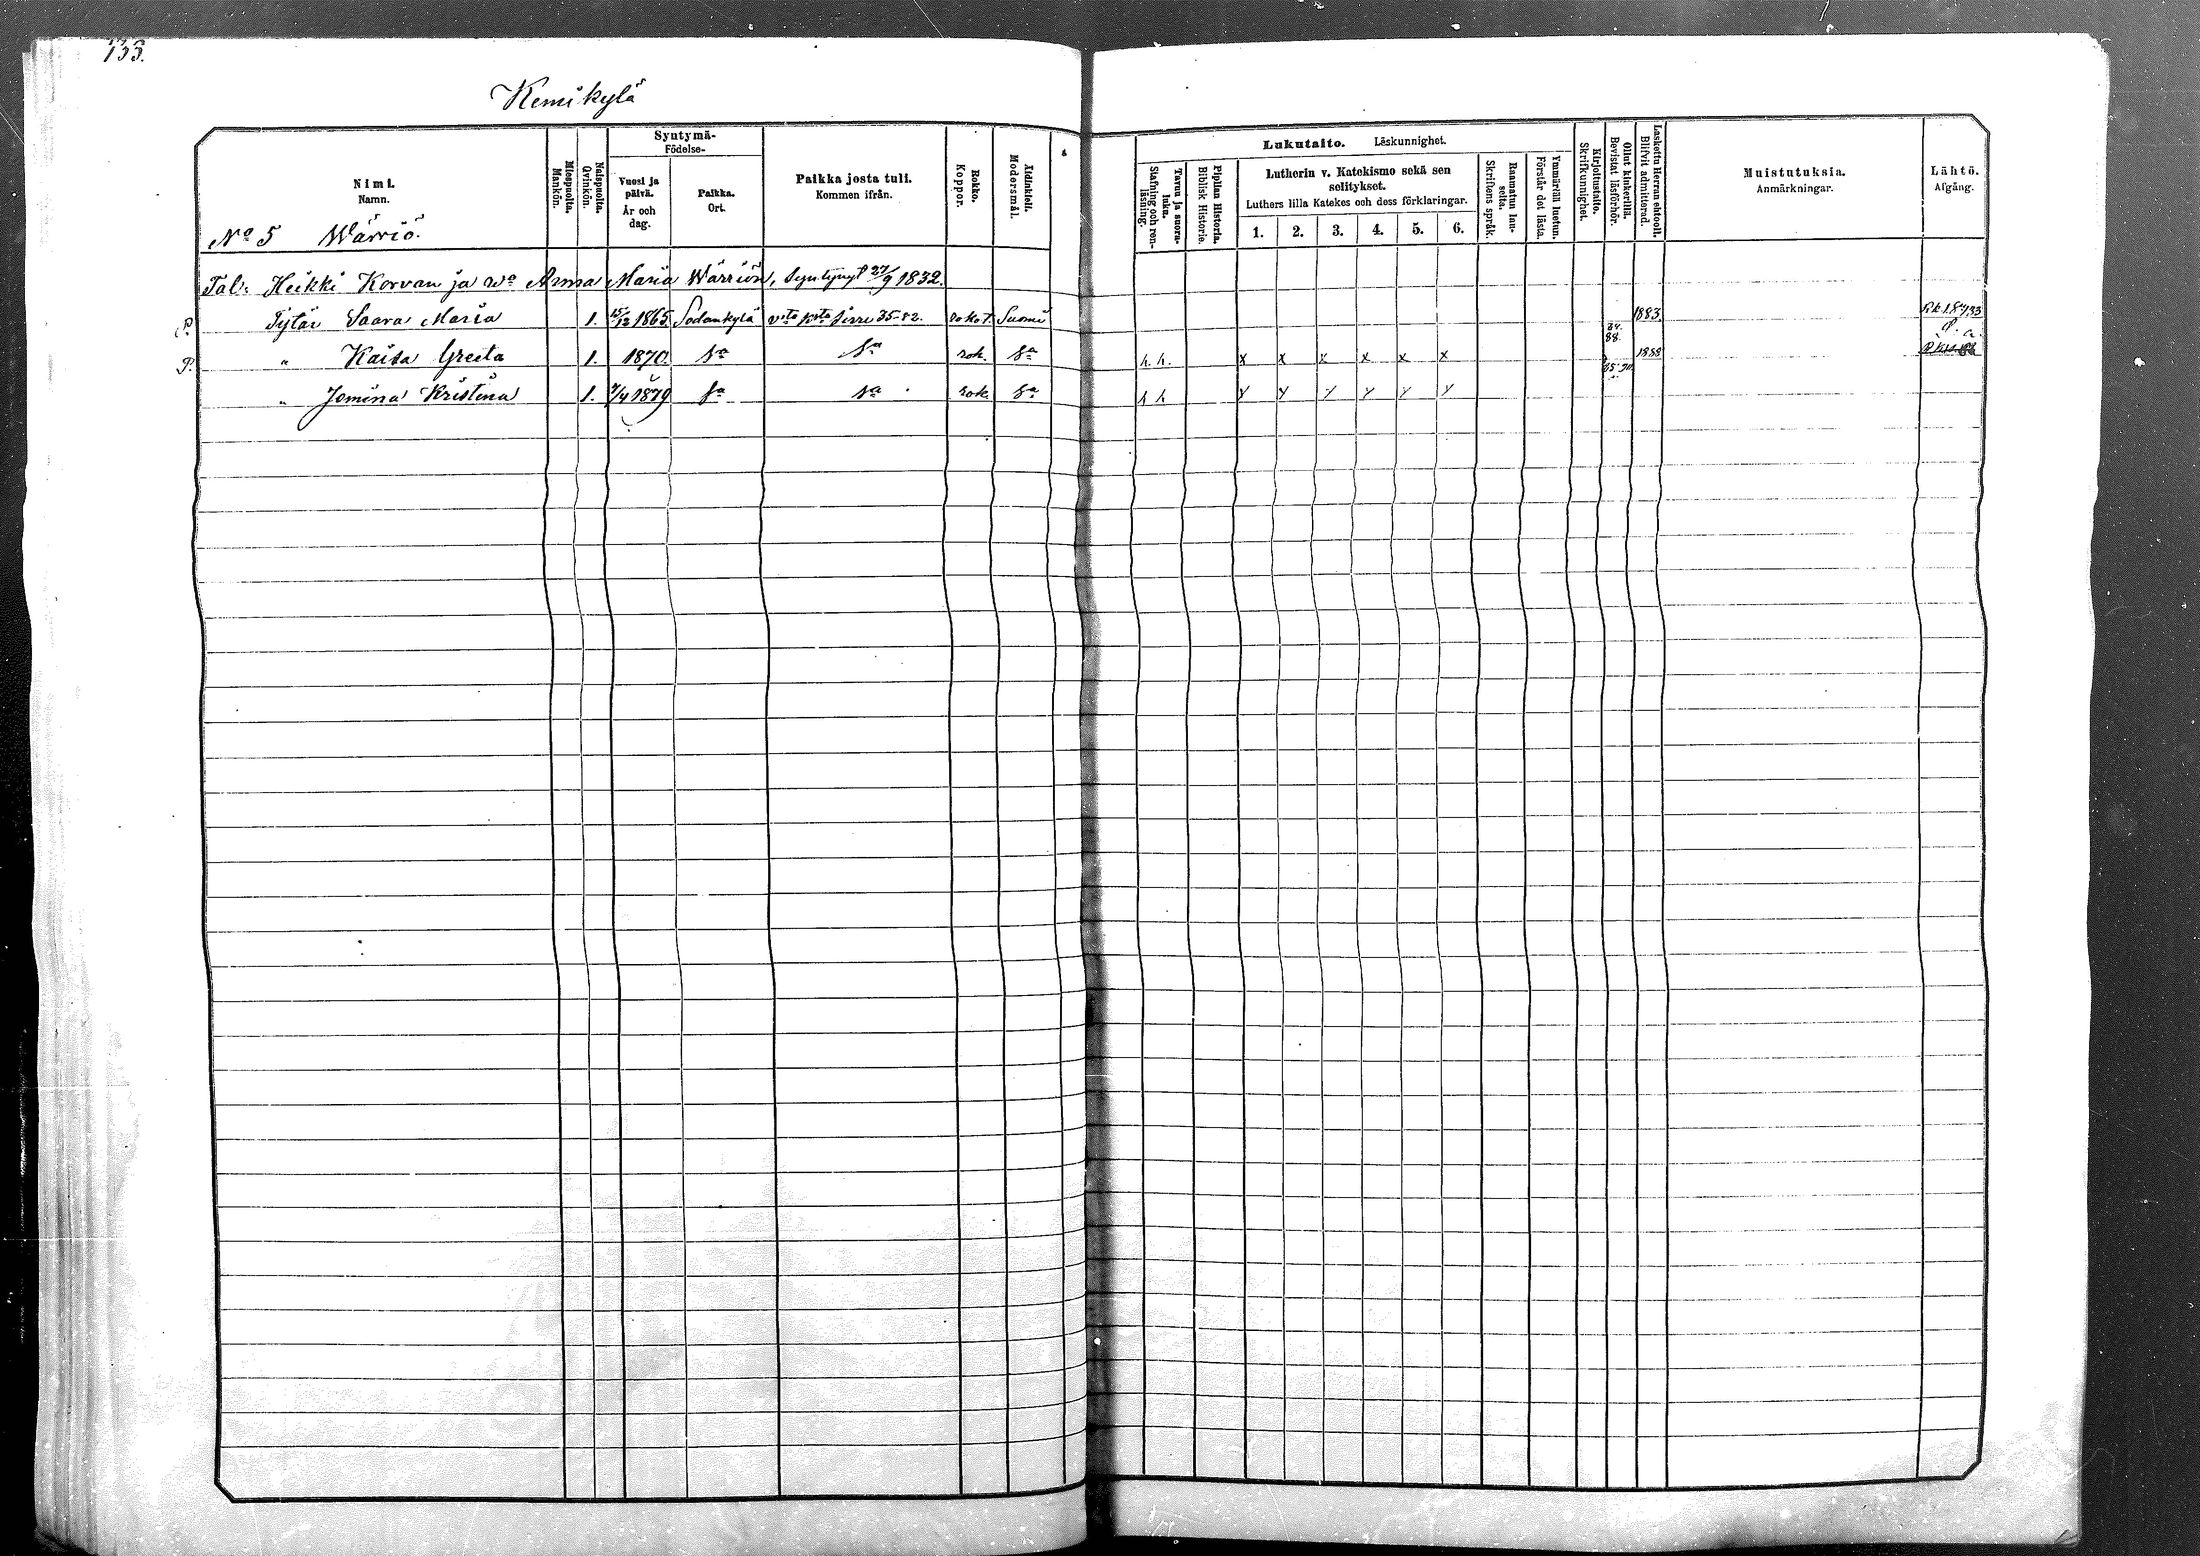 133.
Kemikylä
Nimi.
Namn.
Miespuolta.
Mankön.
Naispuolta.
Qvinkön.
Syntymä-
Födelse-
Vuosi ja päivä.
År och dag.
Paikka.
Ort.
Paikka josta tuli.
Kommen ifrån.
Rokko.
Koppor.
Äidinkieli.
Modersmål.
Lukutaito. Läskunnighet.
Tavuu ja suora-luku.
Stafning och ren-läsning.
Piplian Historia.
Biblisk Historie.
Lutherin v. Katekismo sekä sen
selitykset.
Luthers lilla Katekes och dess förklaringar.
1. 2. 3. 4. 5. 6.
Raamatun lau-selta.
Skriftens språk.
Ymmärtää luetun.
Förstår det lästa.
Kirjoitustaito.
Skrifkunnighet.
Ollut kinkerillä.
Bevistat läsförhör.
Laskettu Herran ehtool.
Blifvit admitterad.
Muistutuksia.
Anmärkningar.
Lähtö.
Afgång.
No 5 Wärriö.
Tal: Heikki Korvan ja wa Anna Maria Wärriön, syntynyt 27/9 1832.
P. Tytär Saara Maria 1. 15/12 1865 Sodankylä siirre 35-82. rokot. Suomi 1883.
P. " Kaisa Greeta 1. 1870. Sa Sa rok. Sa h. h. x x x x x x 88. 1888
" Jomina Kristina 1. 7/4 1879 Sa Sa rok. Sa h h y y y y y y